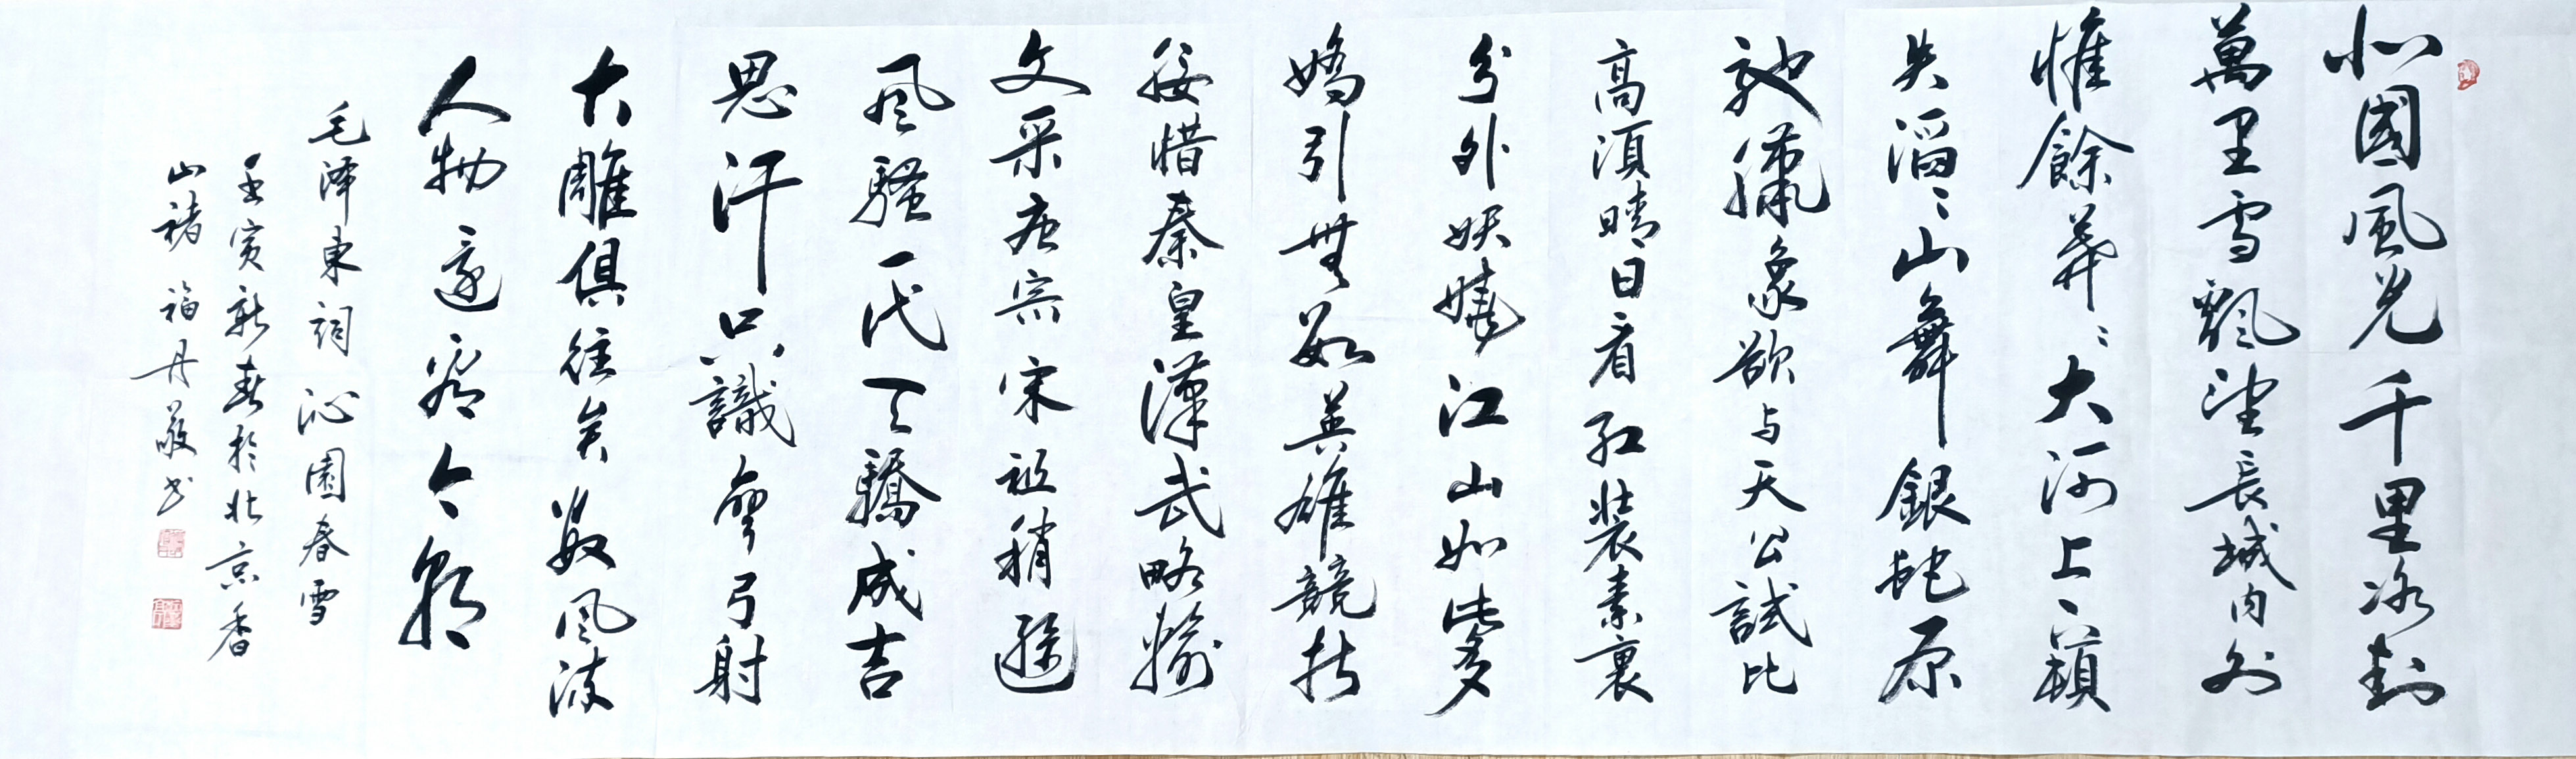 北國風光千里冰封
萬里雪飄望長城内外
惟餘莽〻大河上下頓
失滔〻山舞銀蛇原
馳臘象欲与天公試比
高須晴日看红装素裹
分外妖嬈江山如此多
嬌引無数英雄競折
腰惜秦皇漢武略輸
文采唐宗宋祖稍遜
风騷一代天驕成吉
思汗只識彎弓射
大雕俱往矣数风流
人物還看今朝
毛泽東詞沁園春雪
壬寅新春於北京香
山褚福丹敬书